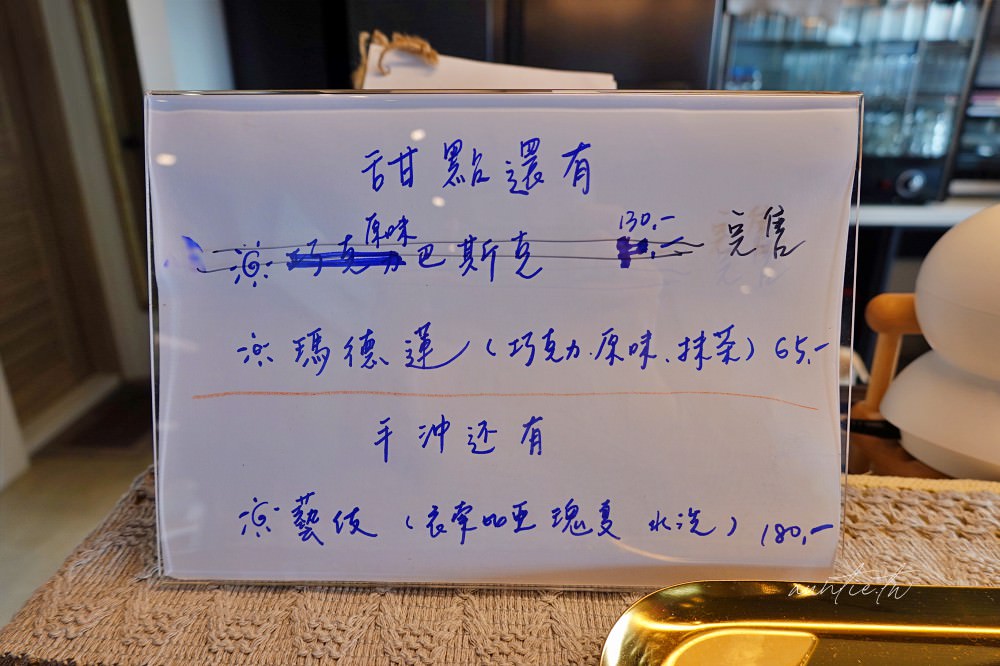 甜點還有
原味 130.-
巧克力巴斯克 完售
瑪德蓮(巧克力.原味.抹茶)65.-
手沖还有
藝伎(衣索比亞 瑰夏 水洗)180.-
auntie.tw